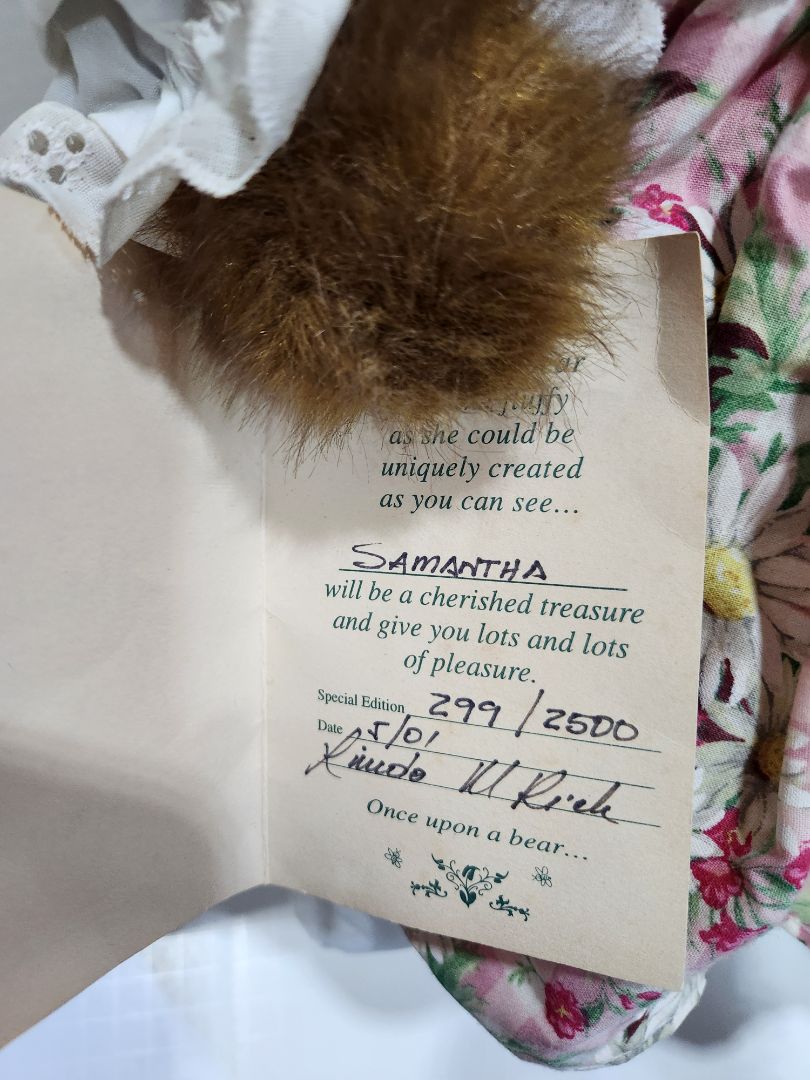 fluffy
as she could be
uniquely created
as you can see...
SAMANTHA
will be a cherished treasure
and give you lots and lots
of pleasure.
Special Edition 299/2500
Date 5/01
M Rich
Once upon a bear...